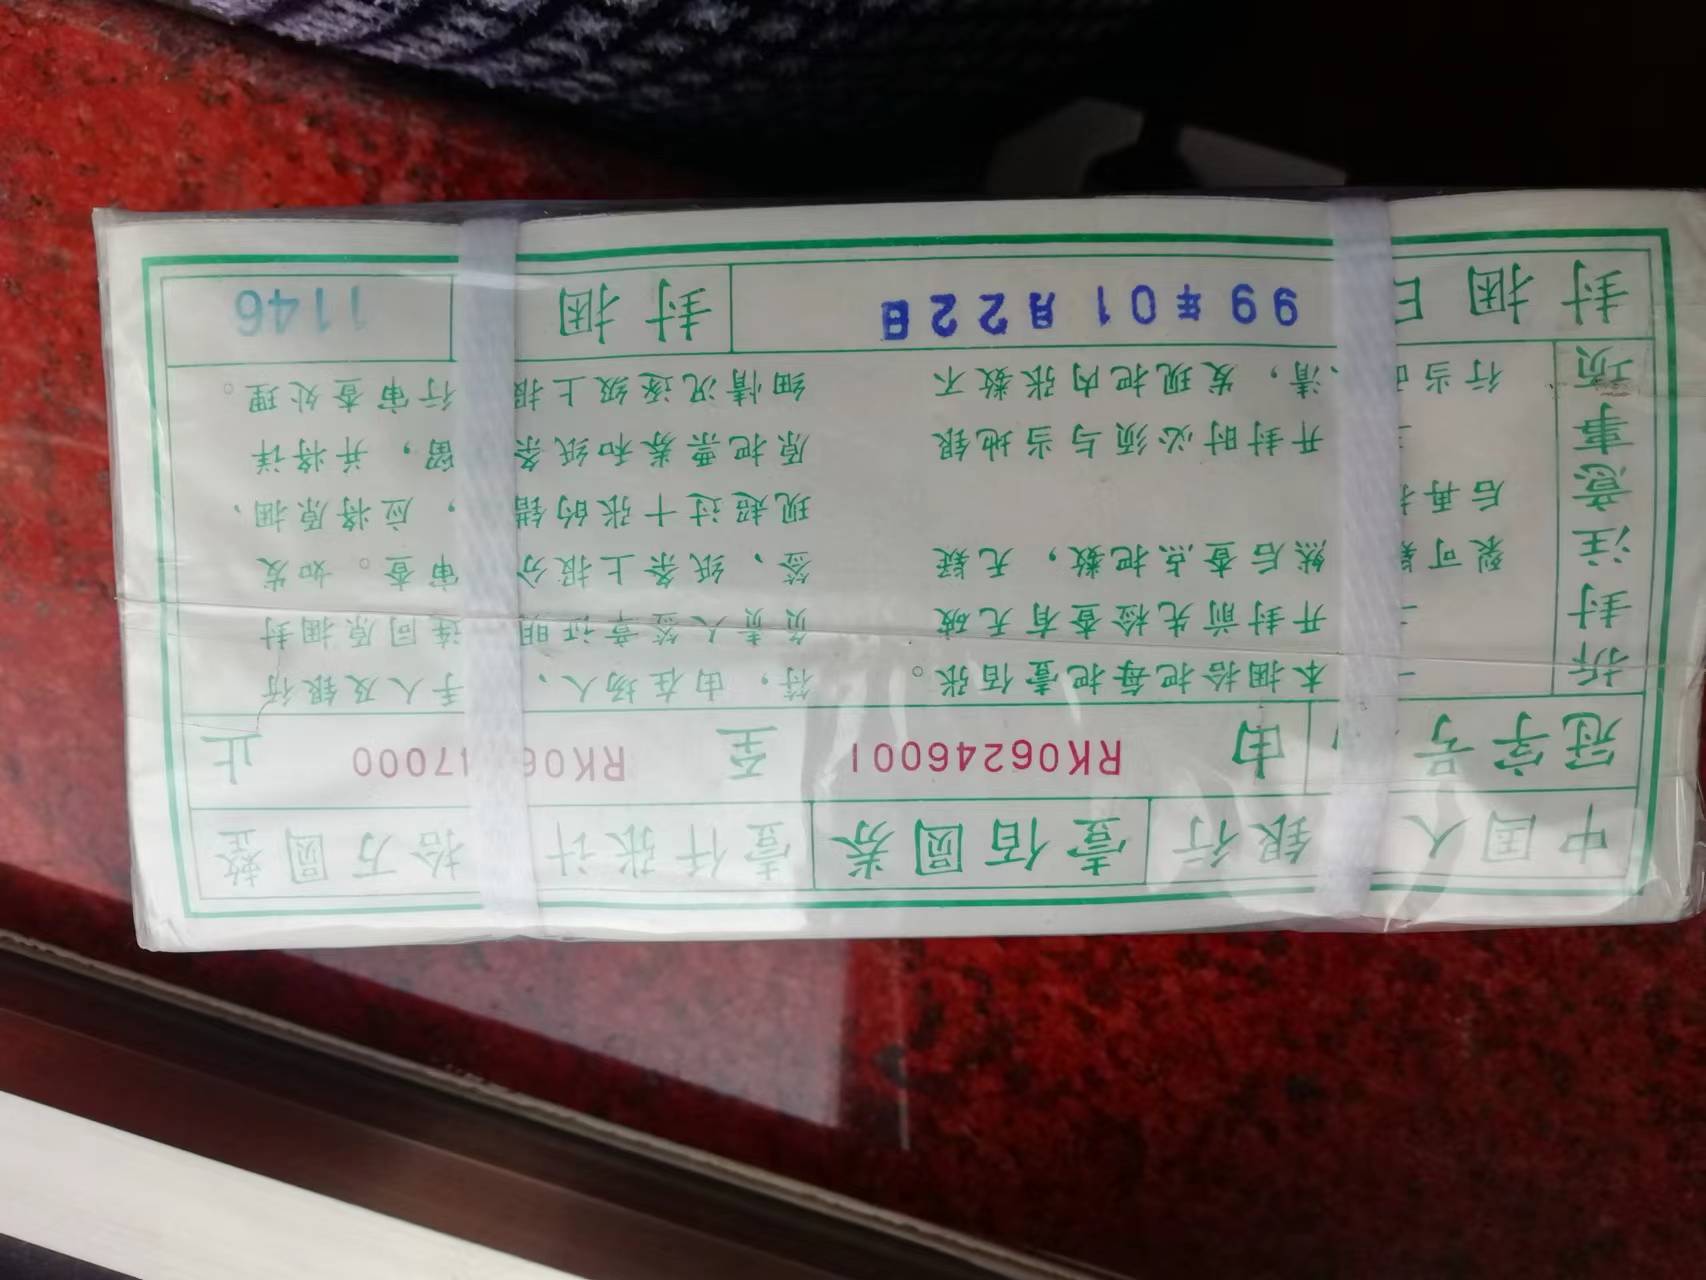 中国人 银行 壹佰圆券 壹仟张计 拾万圆整
冠字号 由 RK06246001 至 RK06 7000 止
拆封注意事项
一 本捆拾把每把壹佰张。
一 开封前先检查有无破
裂可 然后查点把数，无疑
后再
一 开封时必须与当地银
行当 清，发现把内张数不
符，由在场人、 手人及银行
负责人签章证明 连同原捆封
签、纸条上报分 审查。如发
现超过十张的错 ，应将原捆、
原把票券和纸条 留，并将详
细情况逐级上报 行审查处理。
封捆日 99年01月22日 封捆 1146